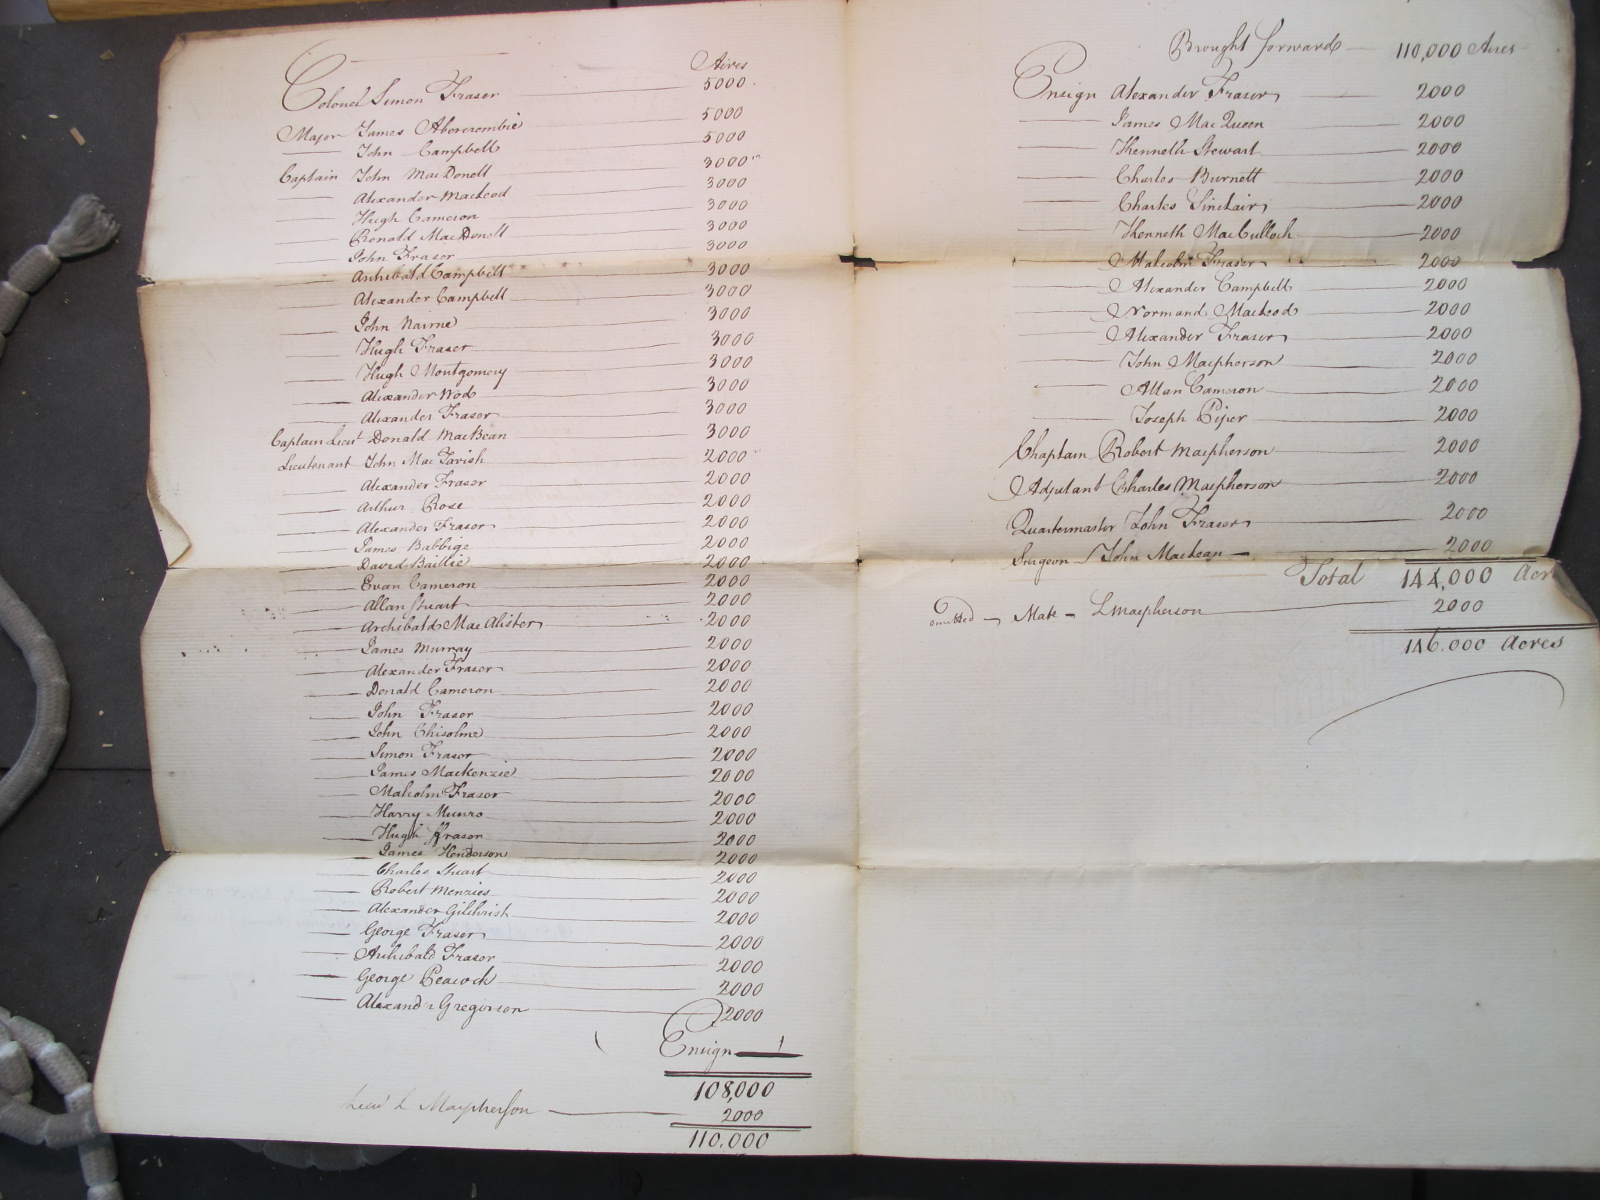 Acres
Colonel Simon Fraser 5000
Major James Abercrombie 5000
John Campbell 5000
Captain John MacDonell 3000
Alexander Macleod 3000
Hugh Cameron 3000
Ronald MacDonell 3000
John Fraser 3000
Archibald Campbell 3000
Alexander Campbell 3000
John Nairne 3000
Hugh Fraser 3000
Hugh Montgomery 3000
Alexander Wod 3000
Alexander Fraser 3000
Captain Lieut Donald MacBean 3000
Lieutenant John MacTavish 2000
Alexander Fraser 2000
Arthur Rose 2000
Alexander Fraser 2000
James Babbige 2000
David Baillie 2000
Evan Cameron 2000
Allan Stuart 2000
Archibald MacAlister 2000
James Murray 2000
Alexander Fraser 2000
Donald Cameron 2000
John Fraser 2000
John Chisolme 2000
Simon Fraser 2000
James Mackenzie 2000
Malcolm Fraser 2000
Harry Munro 2000
Hugh Fraser 2000
James Henderson 2000
Charles Stuart 2000
Robert Menzies 2000
Alexander Gilchrist 2000
George Fraser 2000
Archibald Fraser 2000
George Peacock 2000
Alexandr Gregorson 2000
Ensign
108,000
Lieut L Macpherson 2000
110.000
Brought forward 110,000 Acres
Ensign Alexander Fraser 2000
James MacQueen 2000
Kenneth Stewart 2000
Charles Burnett 2000
Charles Sinclair 2000
Kenneth MacCulloch 2000
Malcolm Fraser 2000
Alexander Campbell 2000
Normand Macleod 2000
Alexander Fraser 2000
John Macpherson 2000
Allan Cameron 2000
Joseph Piper 2000
Chaplain Robert Macpherson 2000
Adjutant Charles Macpherson 2000
Quartermaster John Fraser 2000
Surgeon John Maclean 2000
Total 144,000 Acr
omitted Mate L Macpherson 2000
146.000 Acres